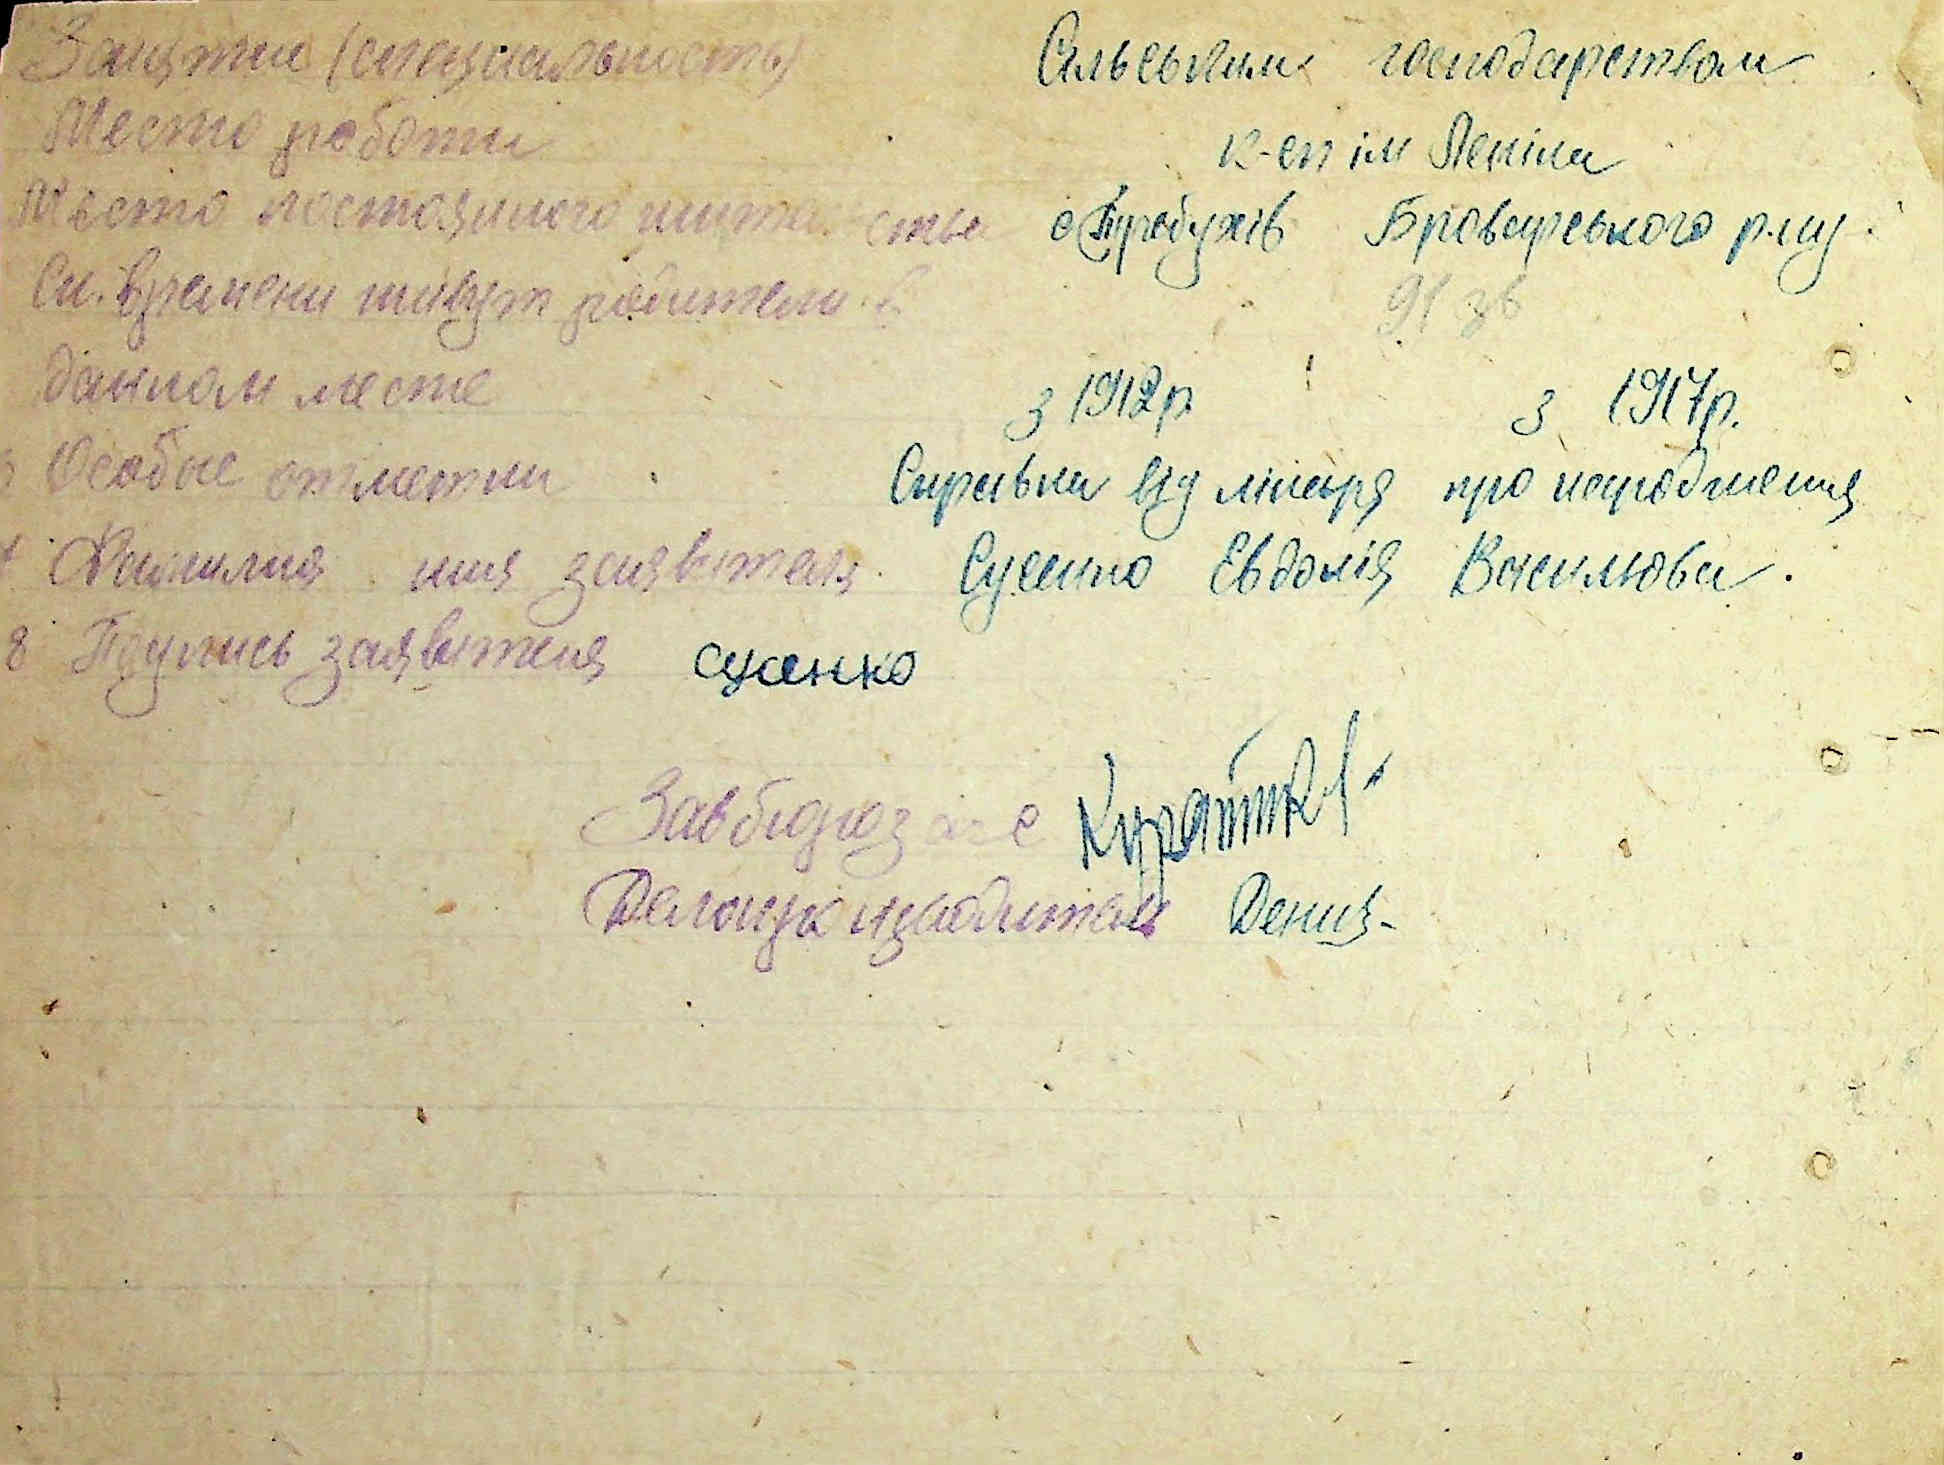 Занятие (специальность) Сільським господарством
Место работи к-сп ім Леніна
Место постоянного жительства с Требухів Броварського р-ну
Ск. времени живут родители в
данном месте з 1912р з 1917р.
Особые отметки Справка від лікаря про народження
Фамилия имя заявителя. Сусенко Евдокія Василювна.
8 Подпись заявителя
Завбюро загс
Делопроизводитель